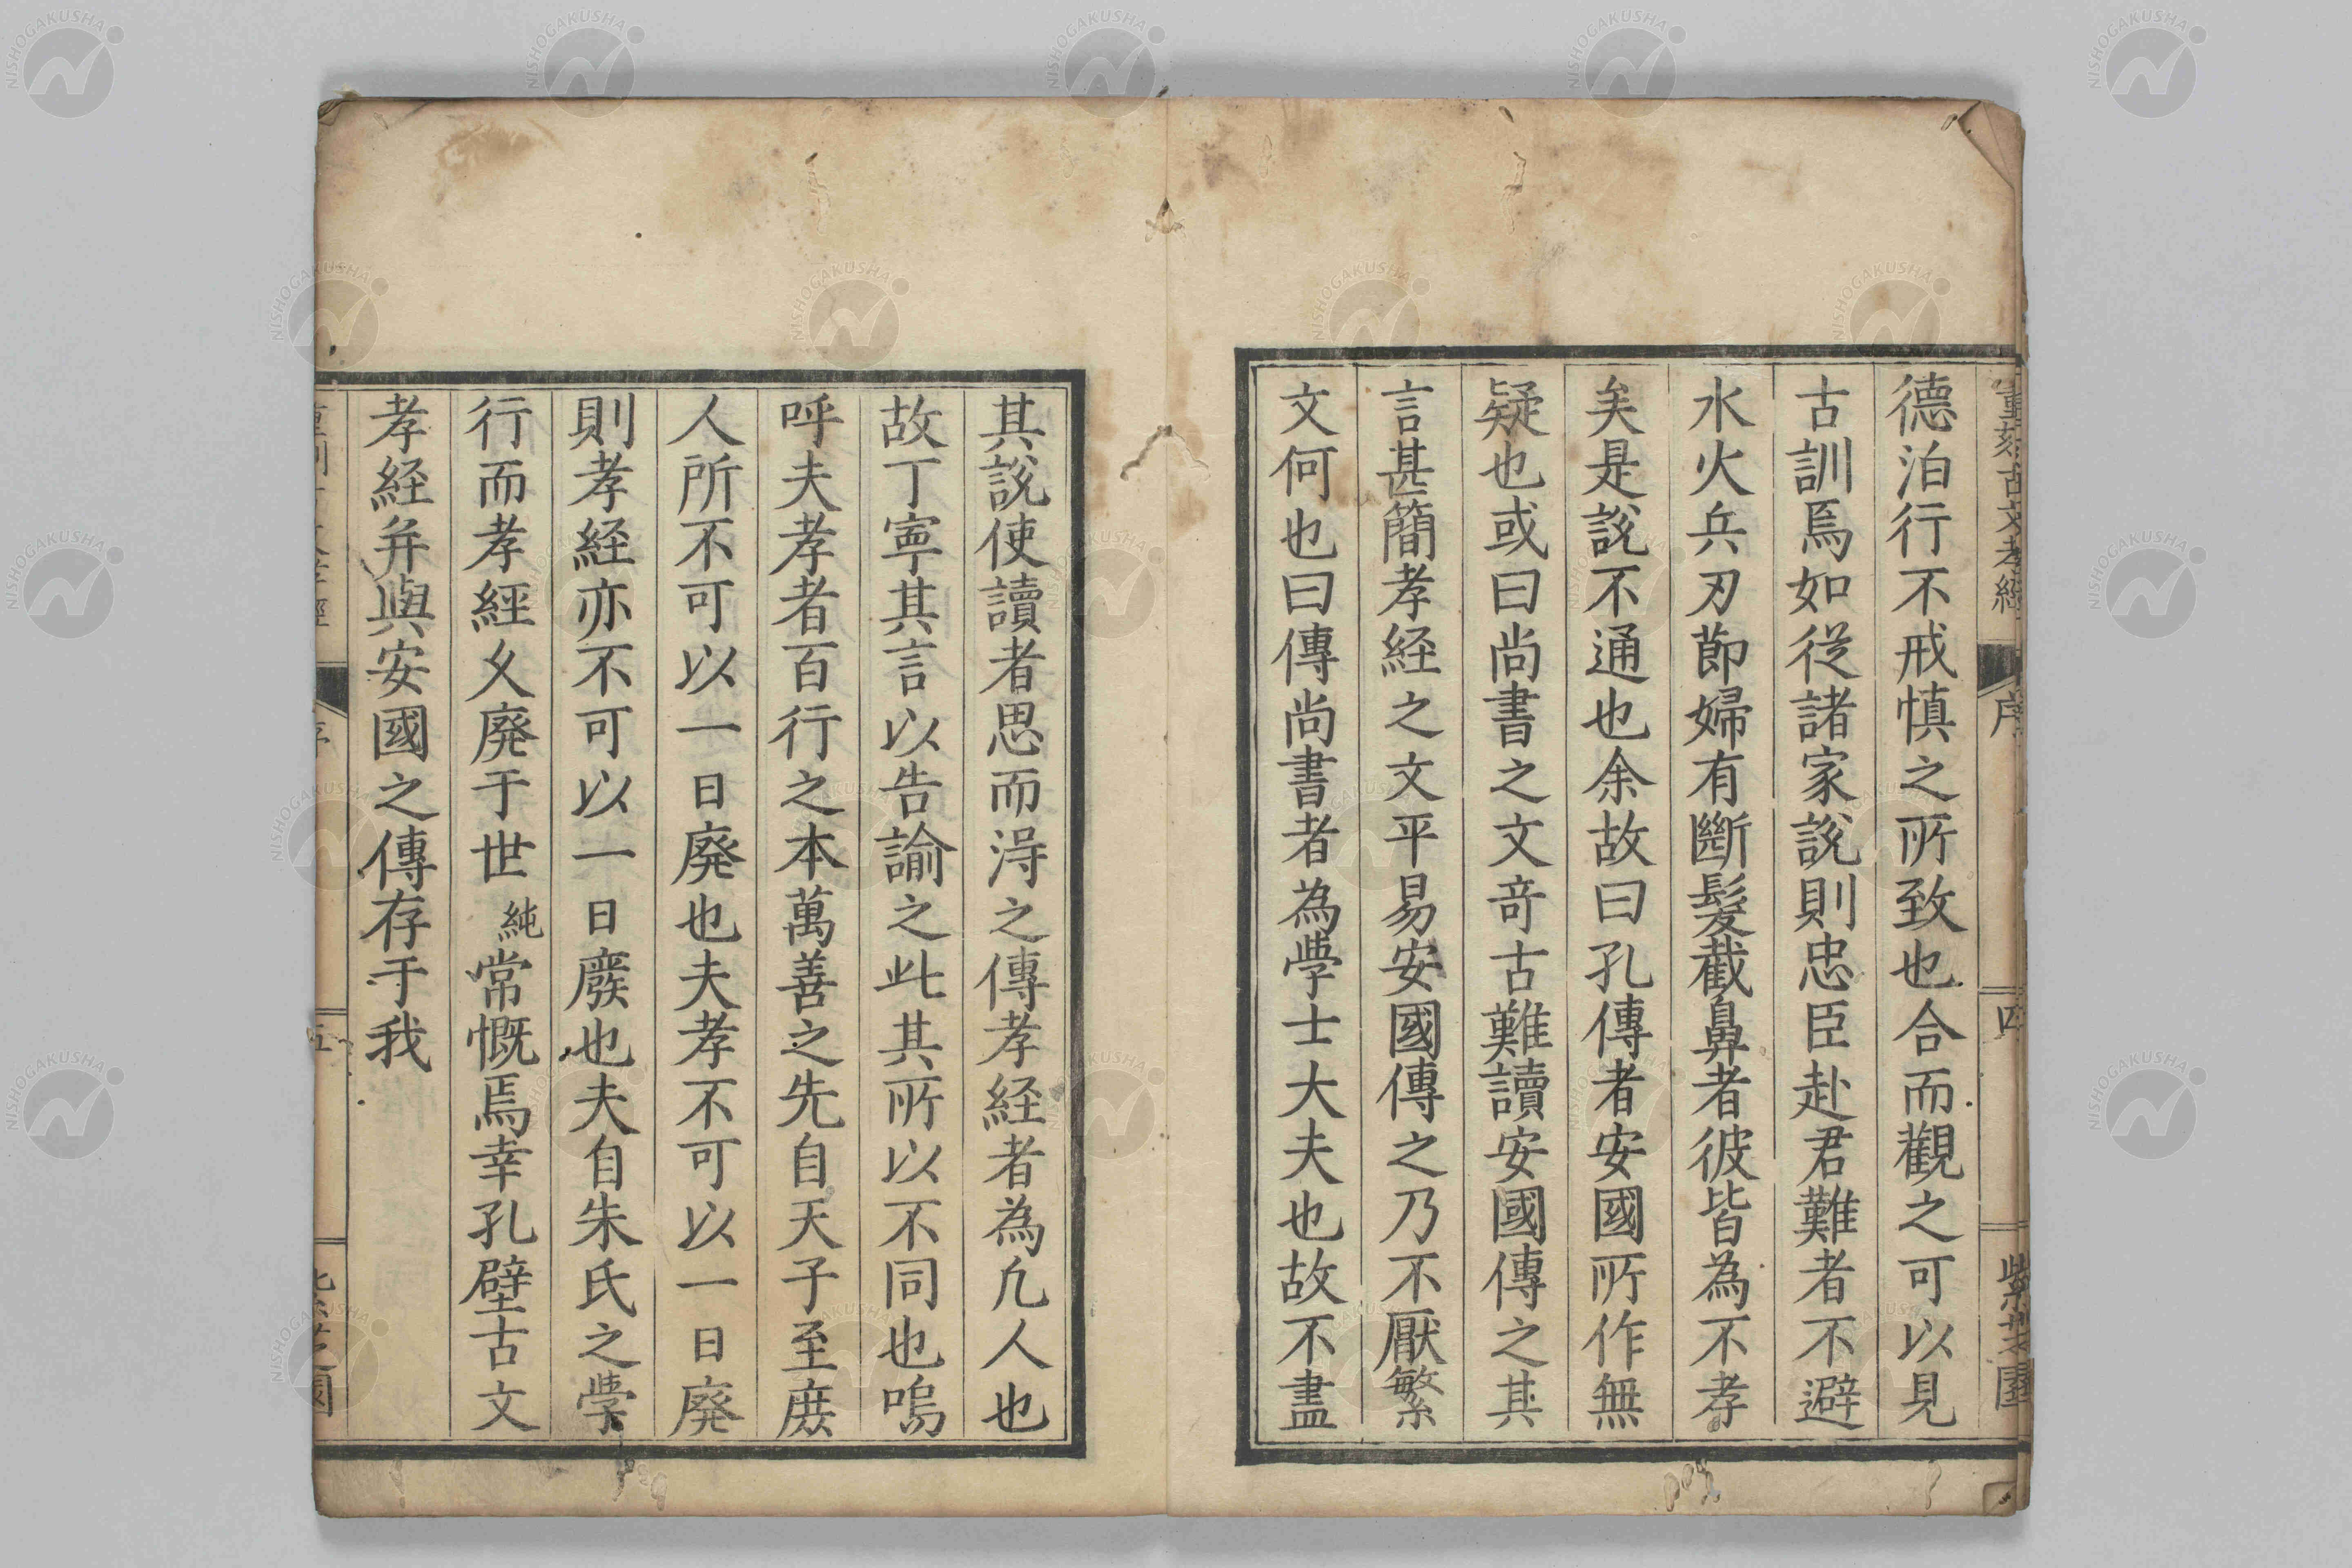 重刻古文孝經 序 四 紫芝園
德泊行不戒慎之所致也合而觀之可以見
古訓焉如從諸家說則忠臣赴君難者不避
水火兵刃節婦有斷髮截鼻者彼皆為不孝
矣是說不通也余故曰孔傳者安國所作無
疑也或曰尚書之文竒古難讀安國傳之其
言甚簡孝経之文平易安國傳之乃不厭繁
文何也曰傳尚書者為學士大夫也故不盡
其說使讀者思而淂之傳孝経者為凢人也
故丁寧其言以告諭之此其所以不同也嗚
呼夫孝者百行之本萬善之先自天子至庶
人所不可以一日廃也夫孝不可以一日廃
則孝経亦不可以一日廢也夫自朱氏之學
行而孝經久廃于世純常慨焉幸孔壁古文
孝経并與安國之傳存于我
序 五 紫芝園
NISHOGAKUSHA